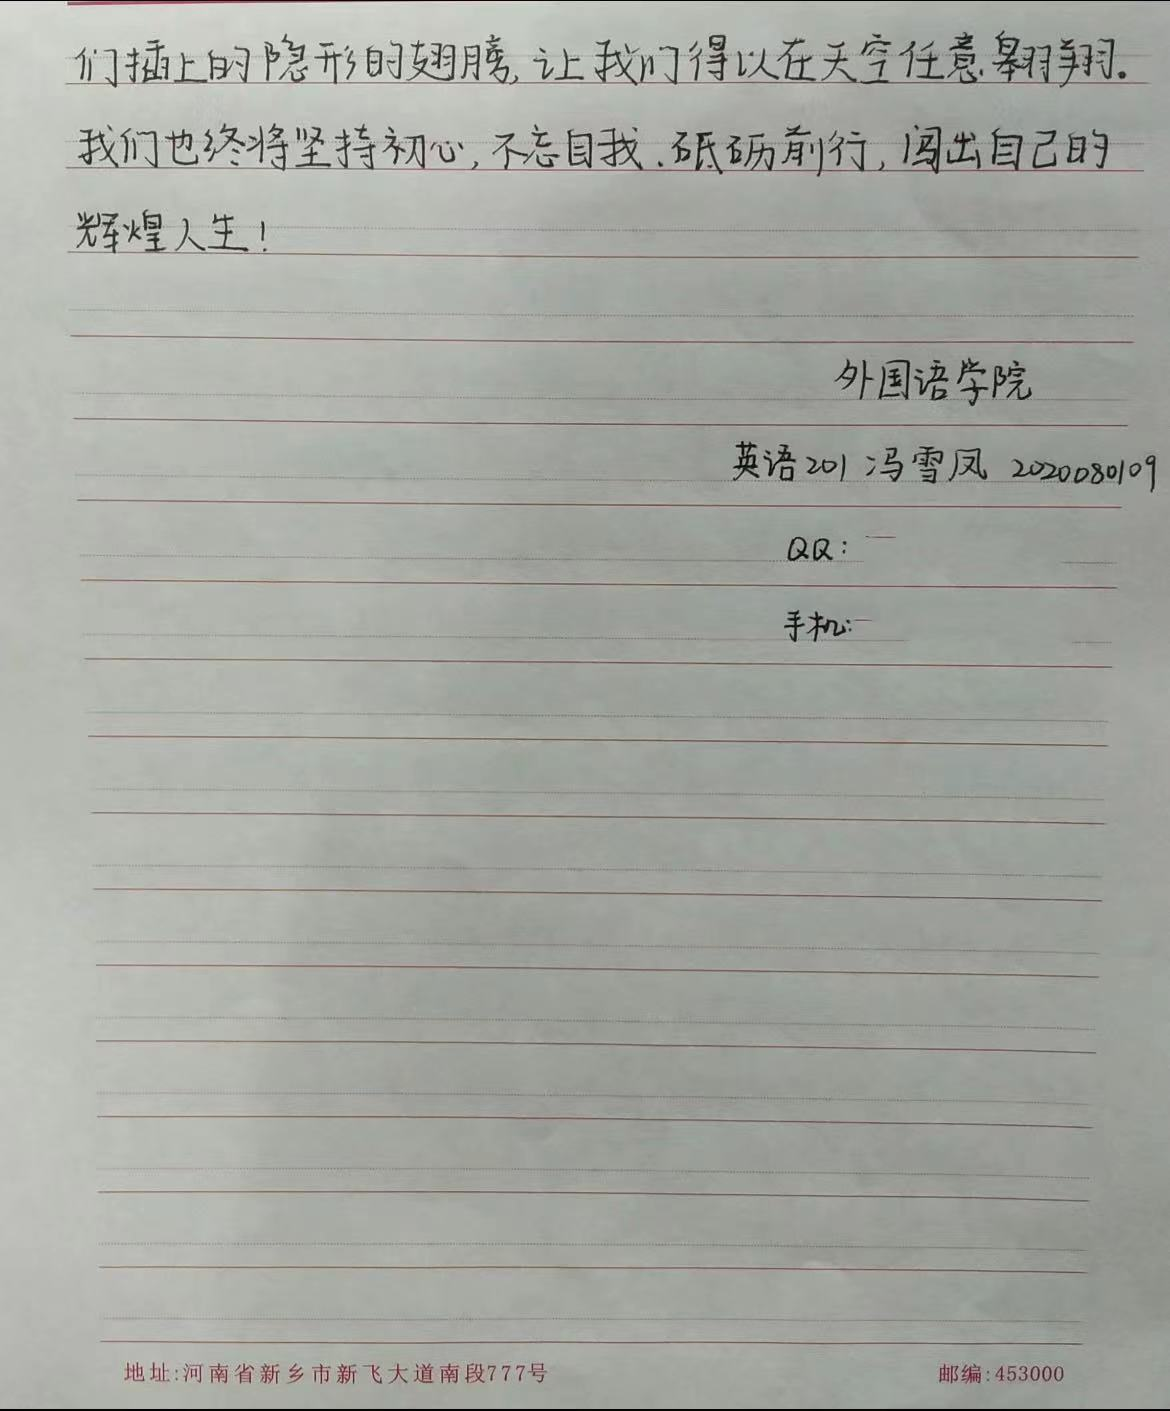 们插上的隐形的翅膀,让我们得以在天空任意翱翔.
我们也终将坚持初心,不忘自我.砥砺前行,闯出自己的
辉煌人生!
外国语学院
英语201 冯雪凤 2020080109
QQ:
手机:
地址:河南省新乡市新飞大道南段777号 邮编:453000